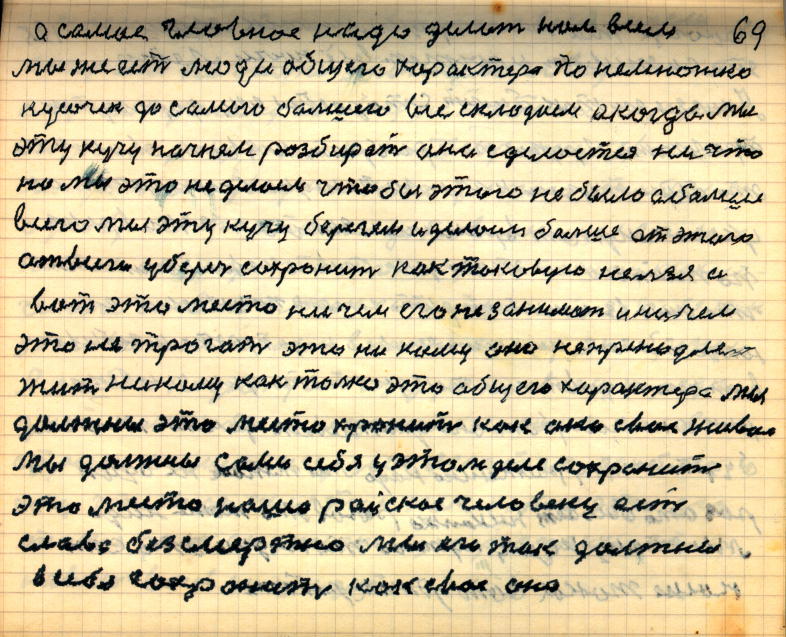 а самае гловное надо делат нам всем 69
мы же ест люди общего характера по немножко
кусочек до самого балшего все складоем а когда мы
эту кучу начнем розбират она сделается ни что
но мы это не делоем что бы этого не было а балше
всего мы эту кучу берегем и делоем балше от этого
атвсего убереч сохронит как токовую нелзя а
вот это место ни чем его не занимат и ни чем
это не трогат это ни кому оно непренодле
жит никому как толко это общего характера мы
должны это место хронит как оно свое живое
мы должны сами себя у этом деле сохронит
это место нашо райское человеку ест
слава безсмертно мы ей так должны
в себя сохронит как свое оно